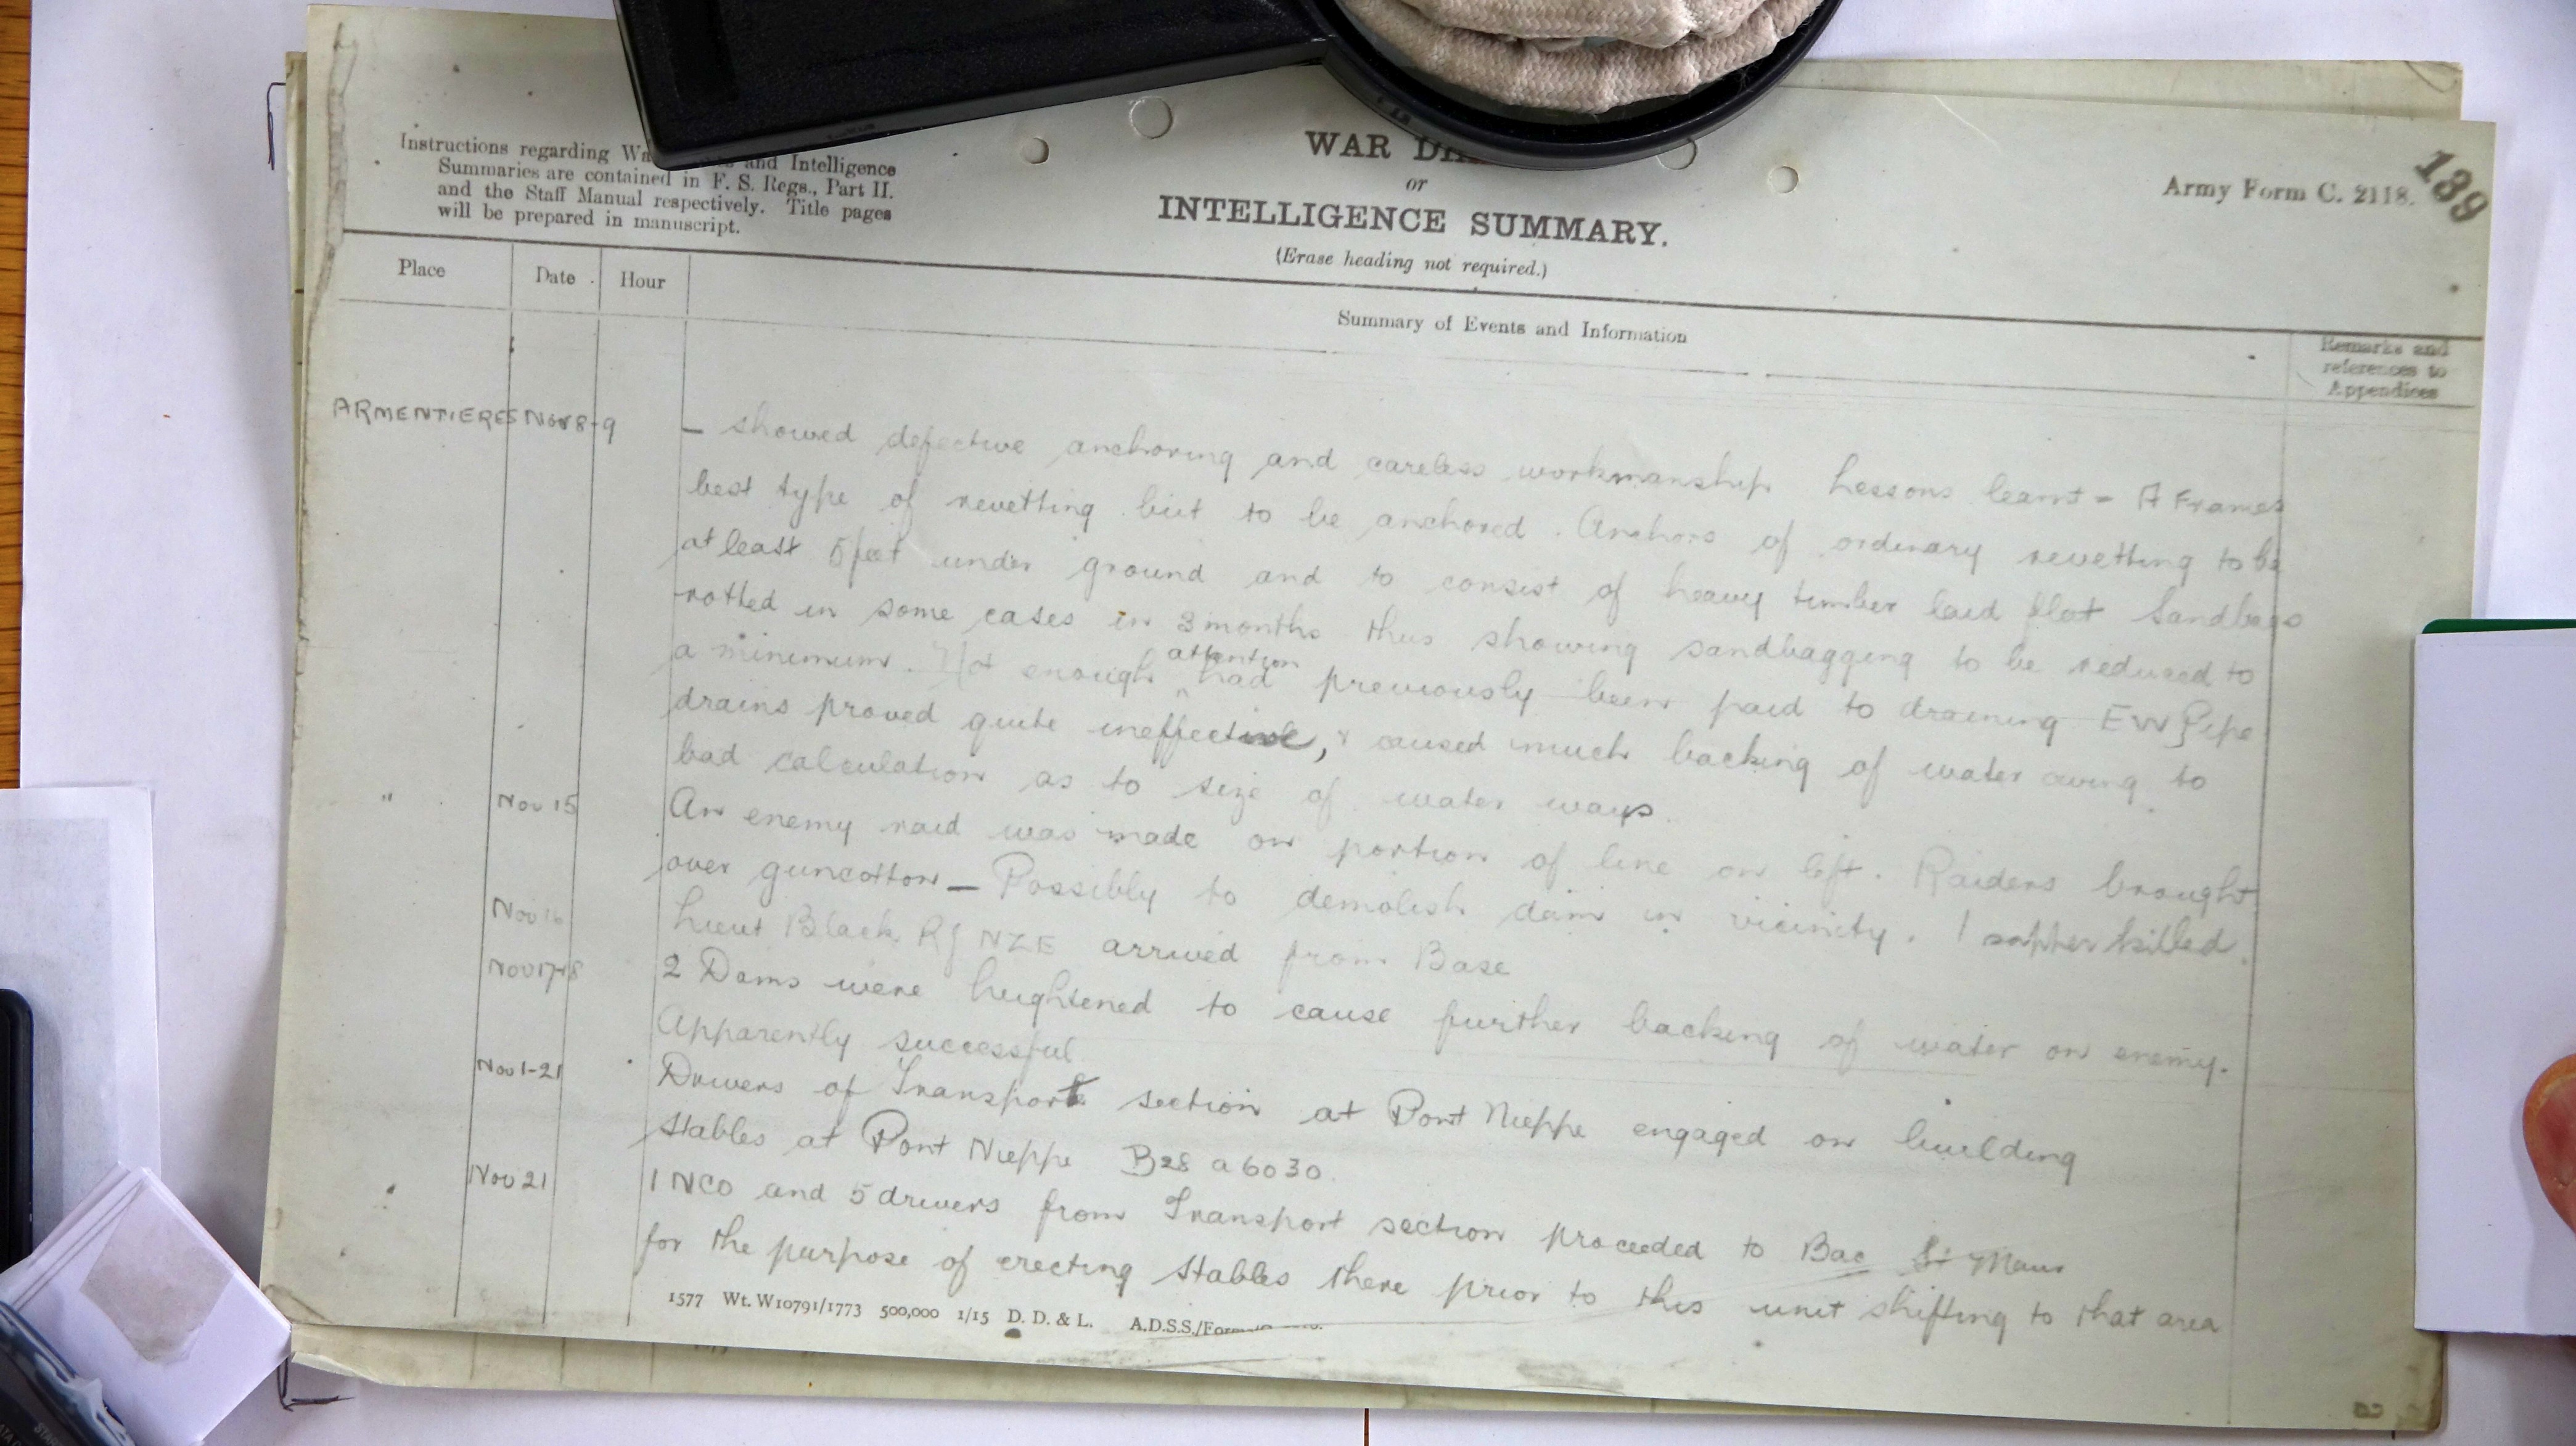 Instructions regarding War and Intelligence
Summaries are contained in F. S. Regs., Part II.
and the Staff Manual respectively. Title pages
will be prepared in manuscript.
WAR
or
INTELLIGENCE SUMMARY.
(Erase heading not required.)
Army Form C. 2118.
139
Place Date Hour
Summary of Events and Information
Remarks and
references to
Appendices
ARMENTIERES Nov 8-9 — showed defective anchoring and careless workmanship Lessons learnt - A Frames
best type of revetting but to be anchored. Anchors of ordinary revetting to be
at least 5 feet under ground and to consist of heavy timber laid flat Sandbags
rotted in some cases in 3 months thus showing sandbagging to be reduced to
a minimum. Not enough attention had previously been paid to draining EW Pipe
drains proved quite ineffective, & caused much backing of water owing to
bad calculation as to size of water ways
" Nov 15 An enemy raid was made on portion of line on left. Raiders brought
over guncotton — Possibly to demolish dam in vicinity. 1 sapper killed.
Nov 16 Lieut Black NZE arrived from Base
Nov 17-18 2 Dams were heightened to cause further backing of water on enemy.
Apparently successful
Nov 1-21 Drivers of Transport section at Pont Nieppe engaged on building
stables at Pont Nieppe B28 a 6030.
" Nov 21 1 NCO and 5 drivers from Transport section proceeded to Bac St Maur
for the purpose of erecting stables there prior to this unit shifting to that area
1577 Wt. W10791/1773 500,000 1/15 D. D. & L. A.D.S.S./Forms/